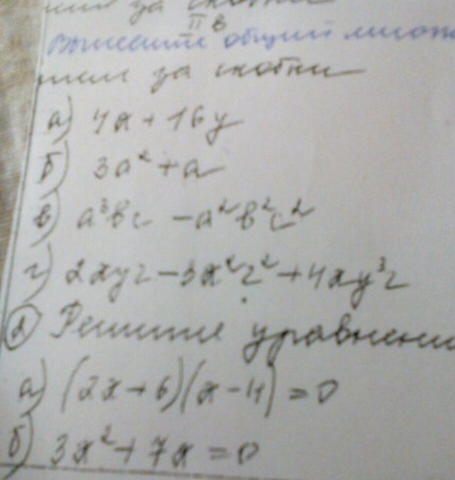 за скобки
II в
Вынесите общий множ
за скобки
а) 4x + 16y
б) 3a² + a
в) a³bc - a²b²c²
г) 2xyz - 3x²z² + 4xy³z
② Решите уравнени
а) (2x + 6)(x - 4) = 0
б) 3x² + 7x = 0